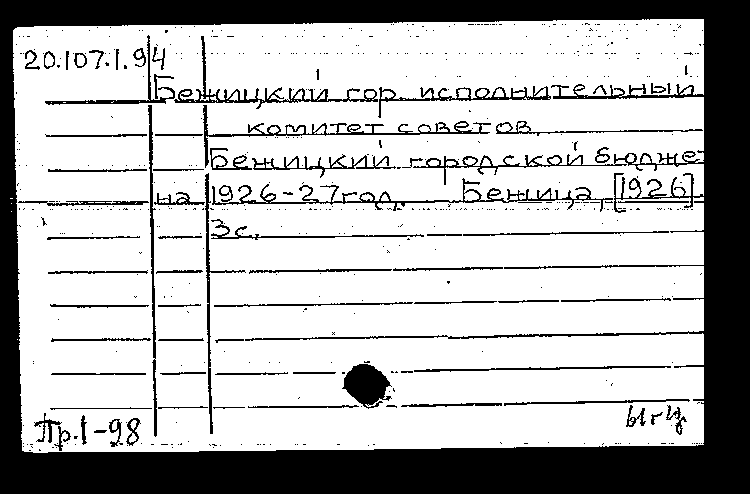 20.107.1.94
Бежицкий гор. исполнительный
комитет советов.
Бежицкий городской бюдже
на 1926-27 год. Бежица, [1926].
3с.
Пр.1-98